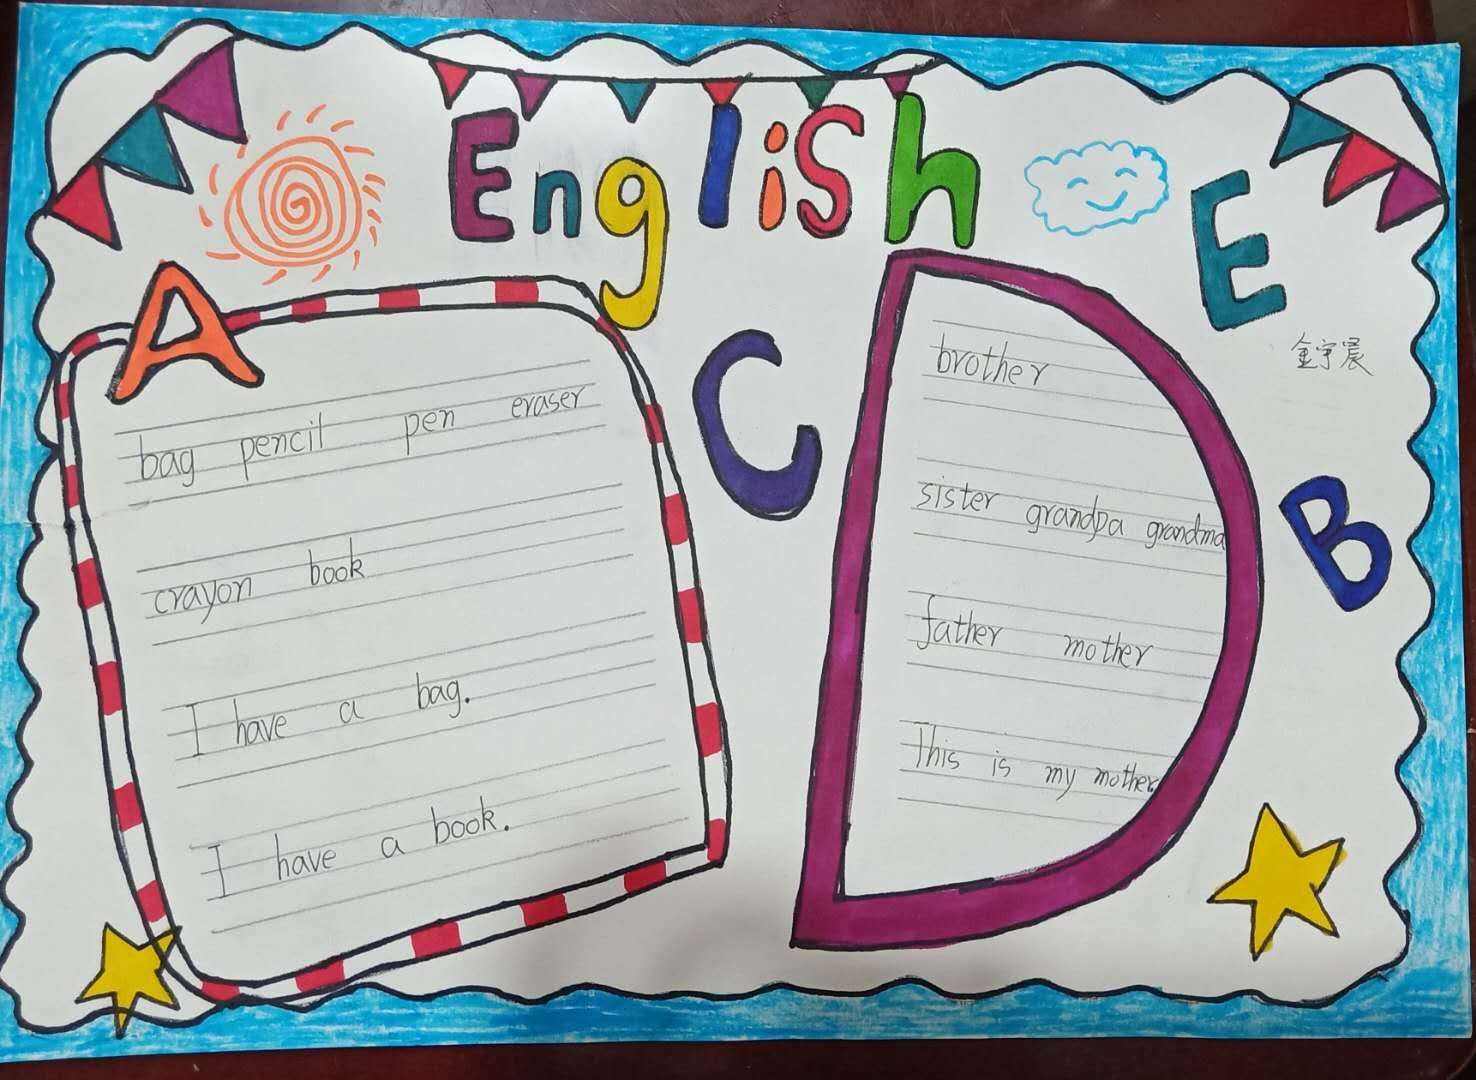 English
A
bag pencil pen eraser
crayon book
I have a bag.
I have a book.
C
brother
sister grandpa grandma
father mother
This is my mother.
E
金宇晨
B